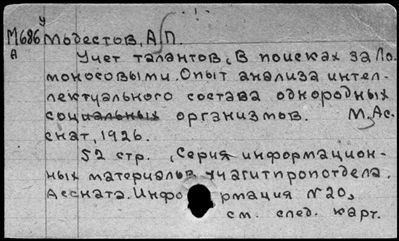 У
М686 Модестов, А.П.
А
Учет талантов, В поисках за Ло-
моносовыми. Опыт анализа интел-
лектуального состава однородных
социальных организмов. М, Ас-
снат, 1926.
52 стр. (Серия информацион-
ных материалов учагитпропотдела
Ассната. Информация N 20)
см. след. карт.